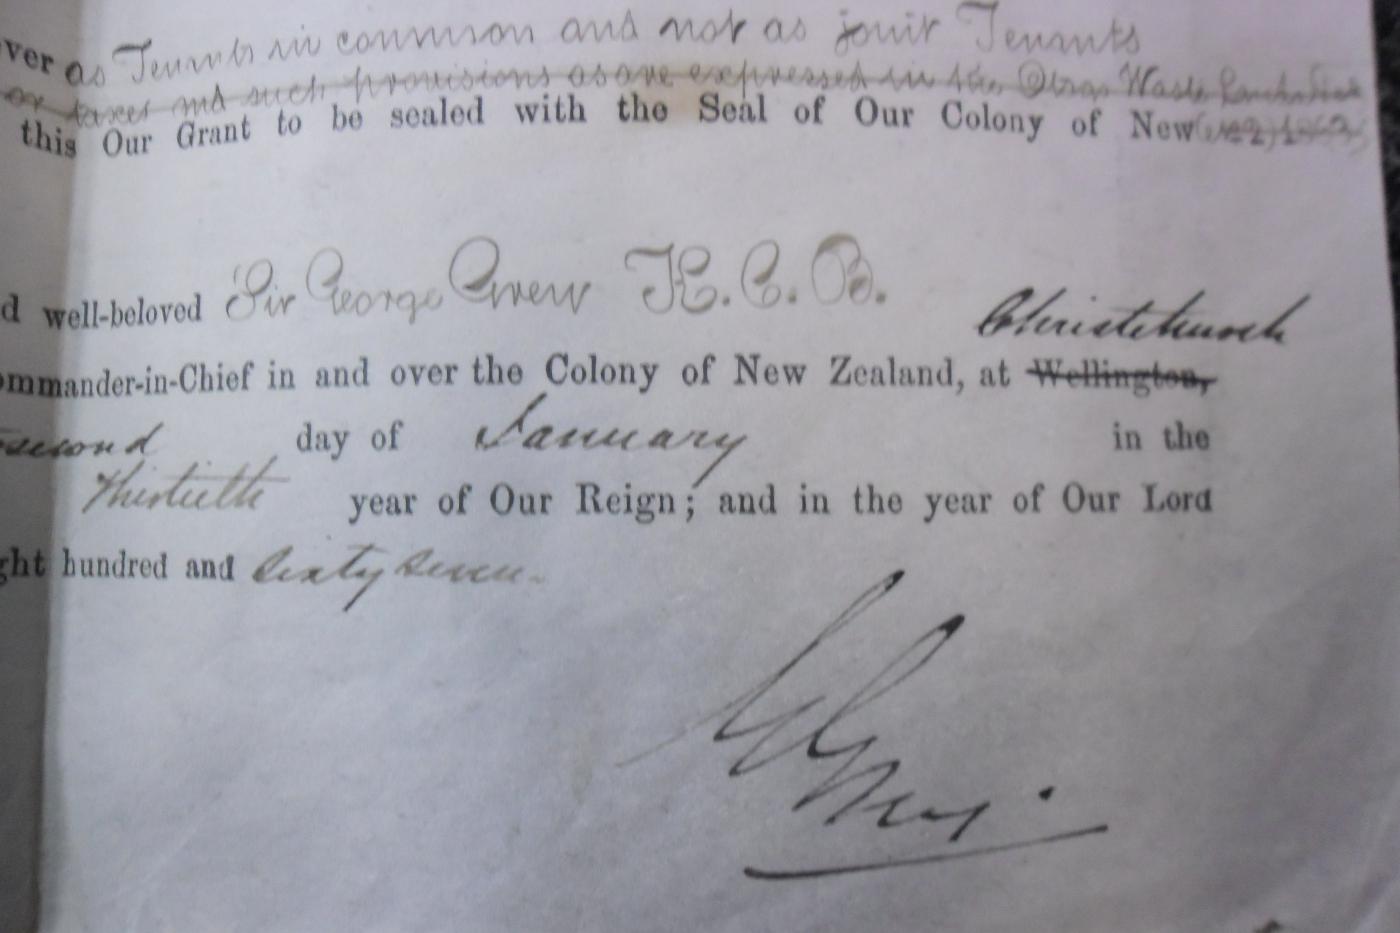 ver as Tenants in common and not as joint Tenants
or taxes and such provisions as are expressed in the Otago Waste Lands
this Our Grant to be sealed with the Seal of Our Colony of New
d well-beloved Sir George Grey K.C.B.
Christchurch
ommander-in-Chief in and over the Colony of New Zealand, at Wellington,
second day of January in the
Thirtieth year of Our Reign; and in the year of Our Lord
ght hundred and Sixty Seven.
G Grey.